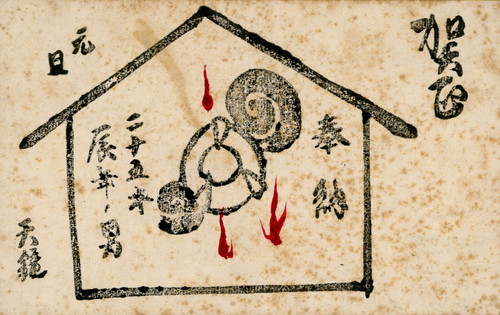 賀正
奉納
二十五才
辰年ノ男
元旦
天鏡